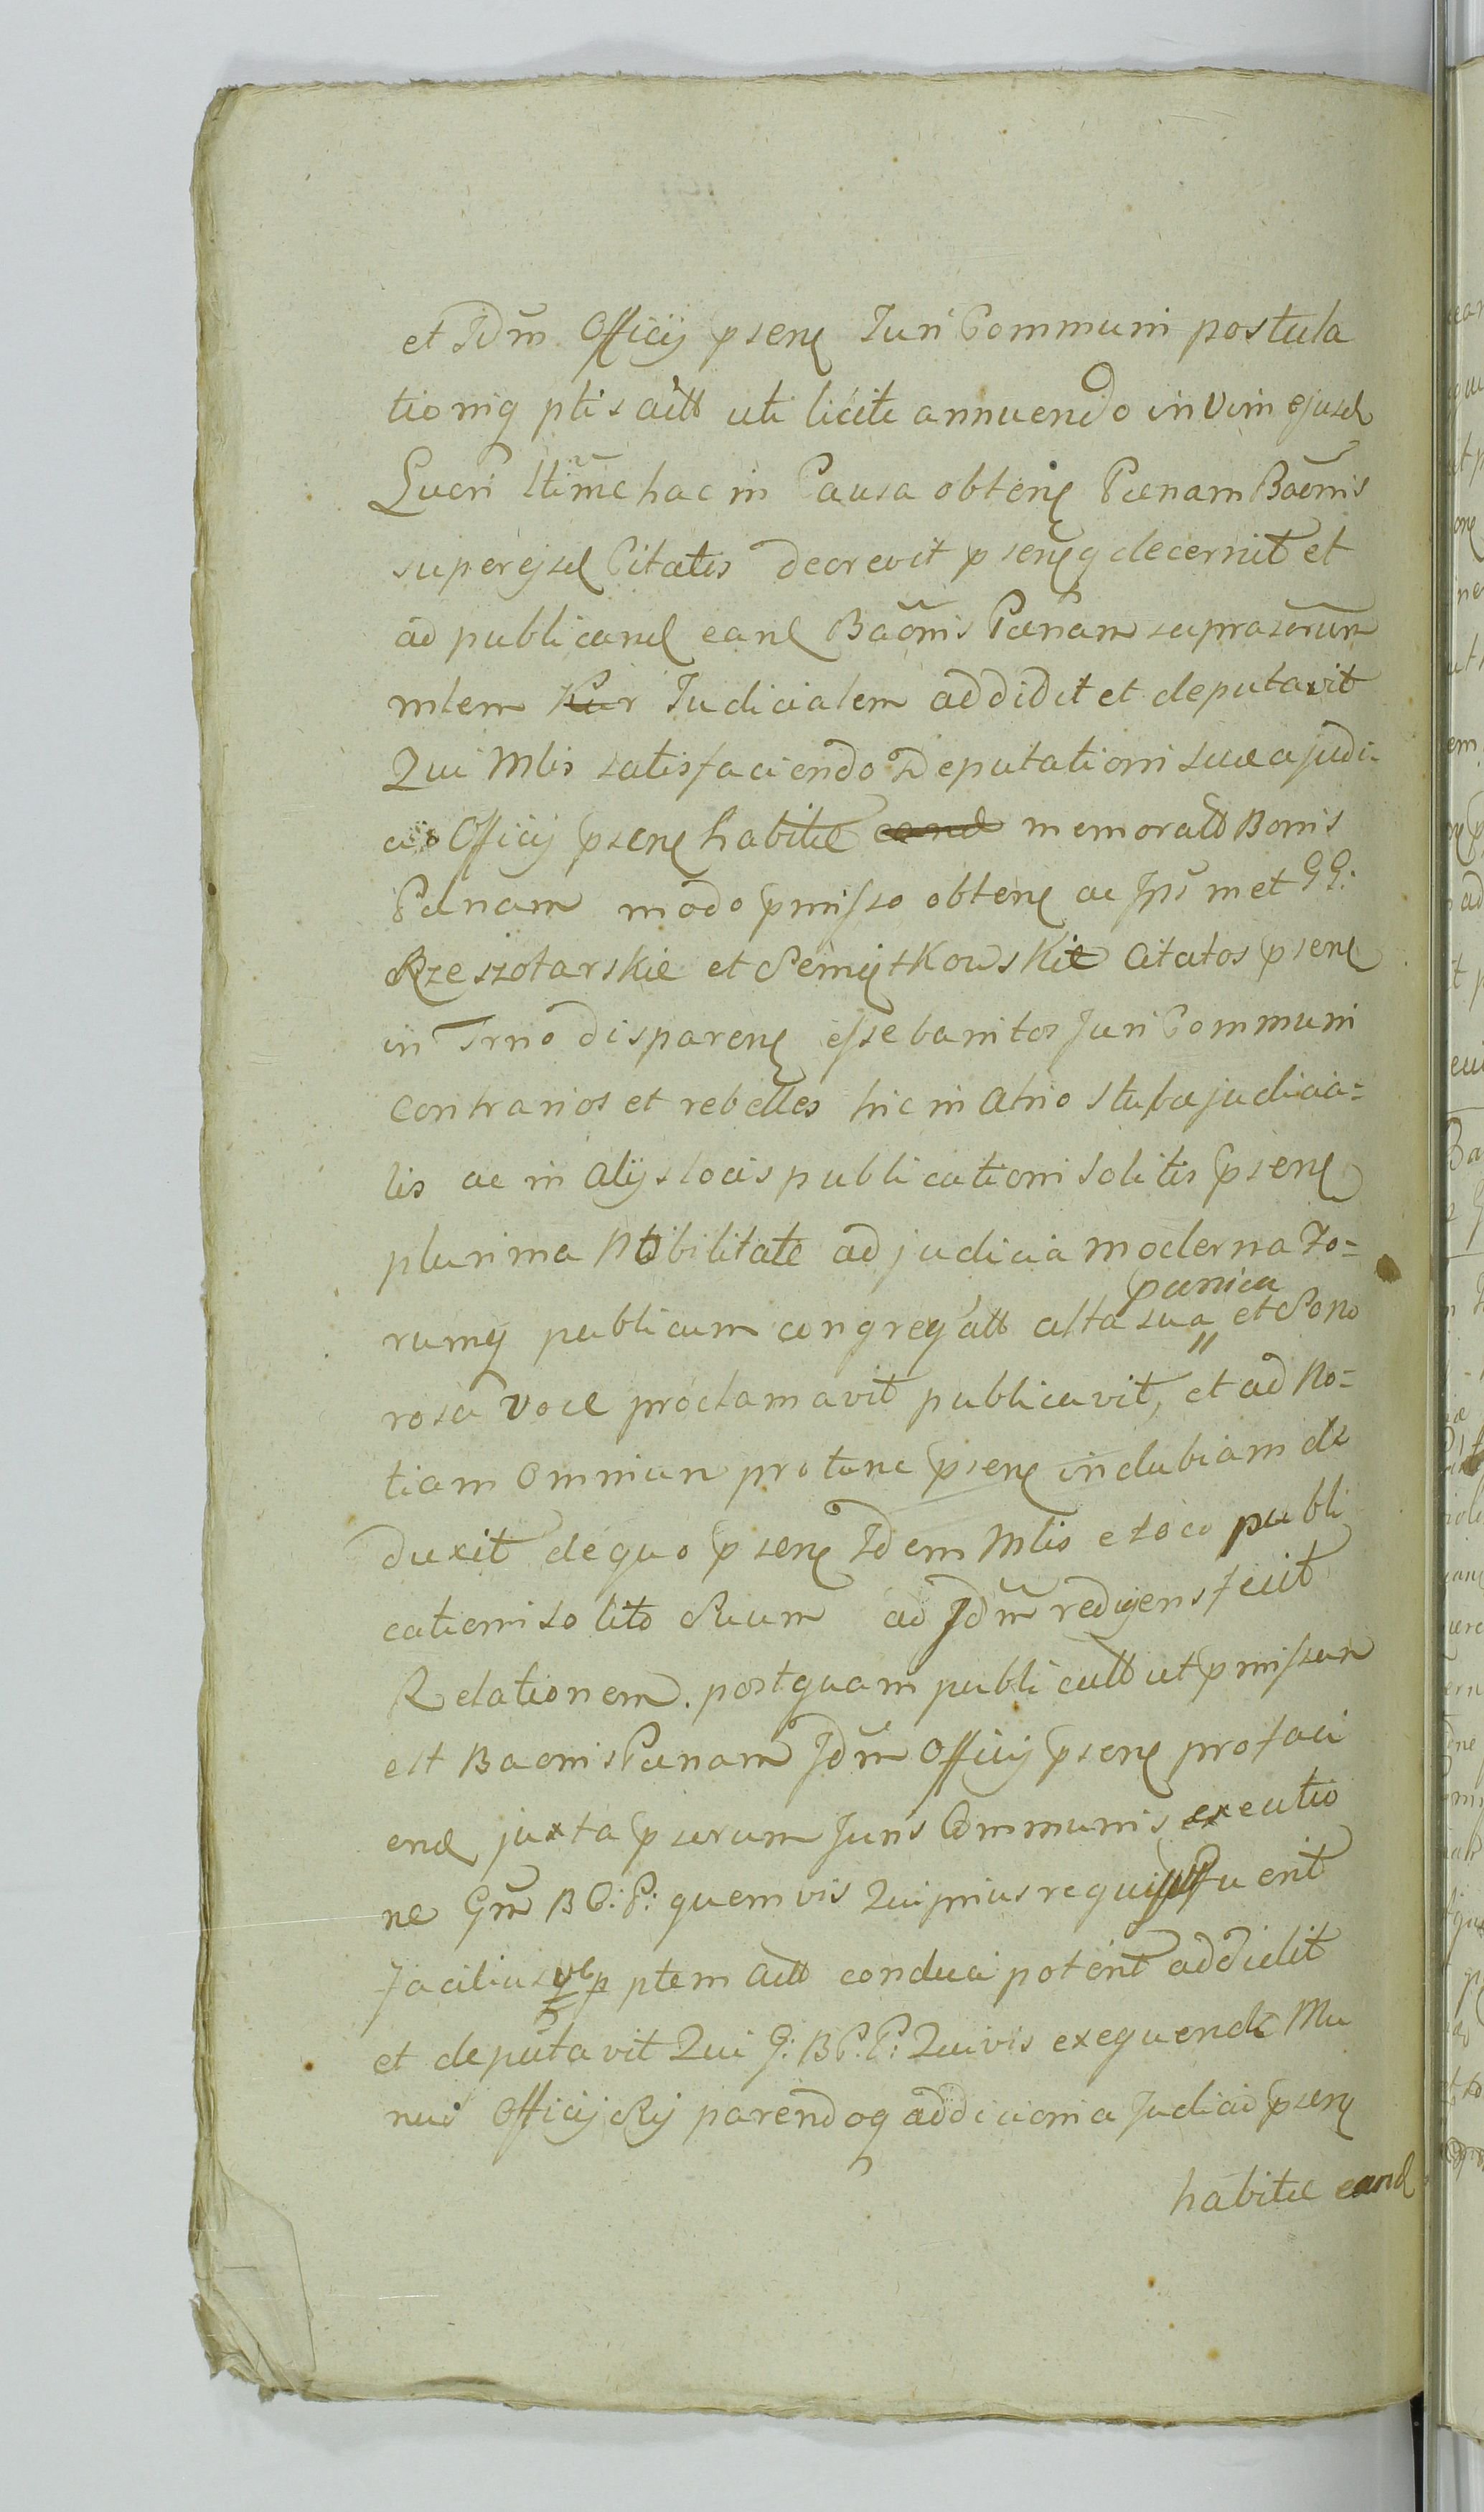 et Jdm Officij psens Juri Communi postula
tioniq ptis actt uti licite annuendo in vim ejusd
Lucri Ultime hac in Causa obtens Pænam Baonis
super ejsd Citatis decrevit psensq decernit et
ad publicand eand Baonis Pænam suprasrum
mlem Judicialem addidit et deputavit
Qui Mlis satisfaciendo Deputationi suæ a judi-
cio Officij psens habitæ eand memoratt Bonis
Pænam modo pmisso obtens ac Jps met GG:
Rzeszotarskie et Semystkowskie Citatos psens
in Trno disparens esse banitos Juri Communi
contrarios et rebelles hic in Atrio stubæ judicia=
lis ac in alijs locis publicationi solitis psens
plurima Nobilitate ad judicia moderna Fo=
rumq publicum congregatt alta sua præmica et Sono
rosa voce proclamavit publicavit, et ad No=
tiam omnium protunc psens indubiam de
duxit de quo psens Jdem Mlis e loco publi
cationi solito suum ad Jdm redigens fecit
Relationem. postquam publicatt ut pmissum
est Baonis Pænam Jdm Officij psens pro faci
end juxta pscrum Juris Communis executio
ne Gm B C: P: quemvis Qui prius requisitus fuerit
facilius vel p ptem actt conduci potent addidit
et deputavit Qui G: B C: P: Quivis exequende Mu
nus Officij Rij parendoq addicioni a Judicio psens
habitæ eand